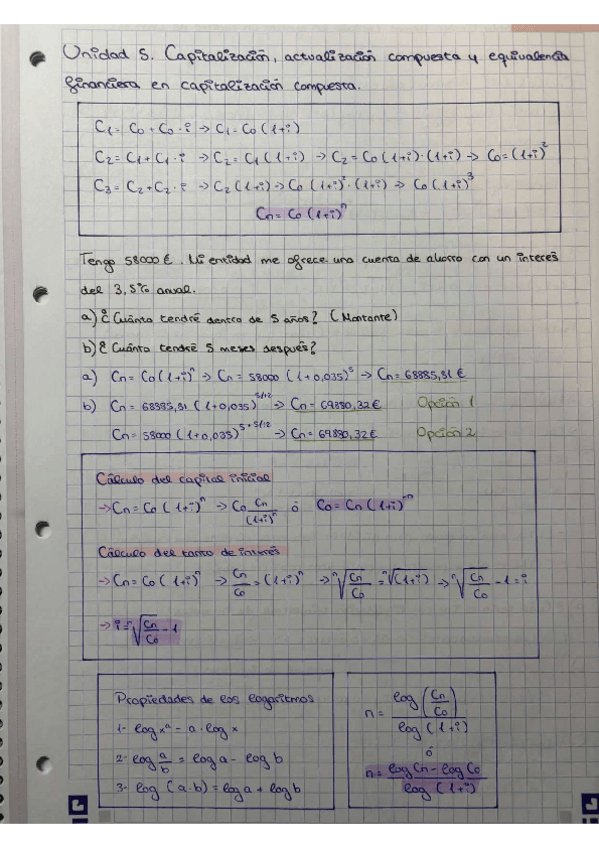 Unidad 5. Capitalización, actualización compuesta y equivalencia
financiera en capitalización compuesta.
C₁ = C₀ + C₀ · i → C₁ = C₀ (1+i)
C₂ = C₁ + C₁ · i → C₂ = C₁ (1+i) → C₂ = C₀ (1+i) · (1+i) → C₀ = (1+i)²
C₃ = C₂ + C₂ · i → C₂ (1+i) → C₀ (1+i)² · (1+i) → C₀ (1+i)³
Cn = C₀ (1+i)ⁿ
Tengo 58000 €. Mi entidad me ofrece una cuenta de ahorro con un interés
del 3,5% anual.
a) ¿Cuánto tendré dentro de 5 años? (Montante)
b) ¿Cuánto tendré 5 meses después?
a) Cn = C₀ (1+i)ⁿ → Cn = 58000 (1+0,035)⁵ → Cn = 68885,81 €
b) Cn = 68885,81 (1+0,035)^5/12 → Cn = 69880,32 € Opción 1
Cn = 58000 (1+0,035)^5+5/12 → Cn = 69880,32 € Opción 2
Cálculo del capital inicial
→ Cn = C₀ (1+i)ⁿ → C₀ Cn/(1+i)ⁿ ó C₀ = Cn (1+i)⁻ⁿ
Cálculo del tanto de interés
→ Cn = C₀ (1+i)ⁿ → Cn/C₀ = (1+i)ⁿ → ⁿ√(Cn/C₀) = ⁿ√(1+i) → ⁿ√(Cn/C₀) - 1 = i
→ i = ⁿ√(Cn/C₀) - 1
Propiedades de los logaritmos
1- log xᵃ - a · log x
2- log a/b = log a - log b
3- log (a·b) = log a + log b
n = log (Cn/C₀) / log (1+i)
ó
n = log Cn - log C₀ / log (1+i)